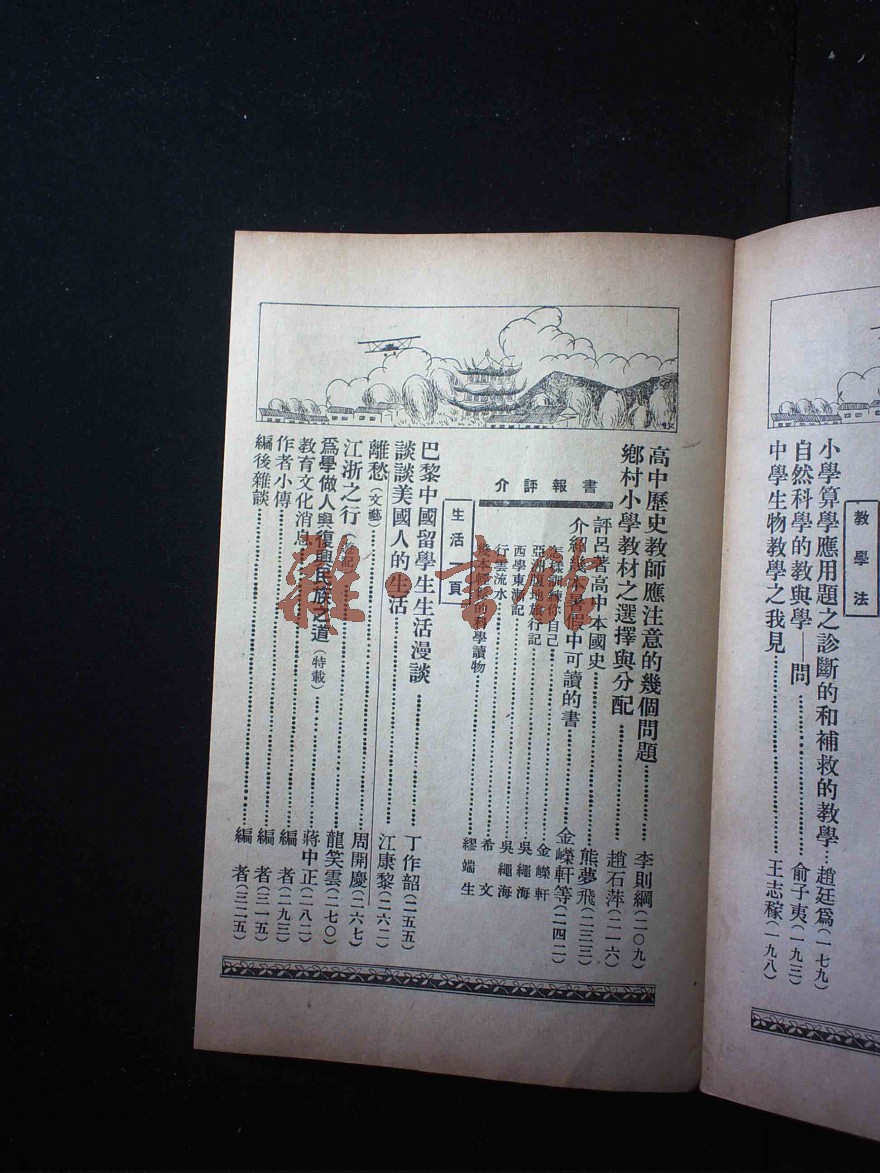 教學法
小學算學應用題之診斷的和補救的教學…趙廷爲(一七九)
自然科學的教與學——問…俞子夷(一九三)
中學生物教學之我見…王志稼(一九八)
高中歷史教師應注意的幾個問題…李則綱(二〇九)
鄉村小學教材之選擇與分配…趙石萍(二一六)
書報評介
評呂著高中本國史…熊夢飛(二三三)
介紹幾本暑假中可讀的書…金嶸軒等(二四二)
怎樣訓練你自己…金嶸軒
亞洲腹地旅行記…吳繩海
西學東漸記…吳繩海
行雲流水…希文
幾本輕鬆的科學讀物…繆端生
生活一頁
巴黎中國留學生生活漫談…丁作韶(二五五)
談談美國人的生活…江康黎(二六二)
離愁(文藝)…周開慶(二六七)
江浙之行(遊記)…龍笑雲(二七〇)
爲學做人與復興民族之道(特載)…蔣中正(二八二)
教育文化消息…編者(二九三)
作者小傳…編者(三一五)
編後雜談…編者(三二五)
雅·書館